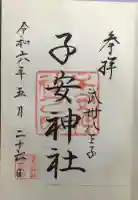 奉拝
武州八王子
子安神社
令和六年五月二十六日